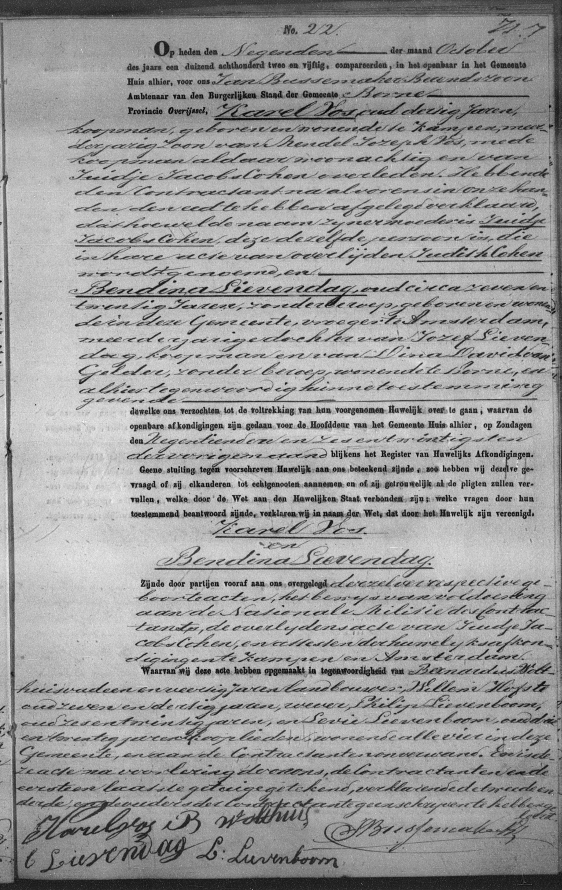 No. 22.
Op heden den Negenden der maand October
des jaars een duizend achthonderd twee en vijftig, compareerden, in het openbaar in het Gemeente
Huis alhier, voor ons Jan Bussemaker Berendszoon
Ambtenaar van den Burgerlijken Stand der Gemeente Borne
Provincie Overijssel, Karel Vos, oud dertig Jaren,
koopman, geboren en wonende te Kampen, meer-
derjarig zoon van Mendel Jozeph Vos, mede
koopman aldaar woonachtig en van
Juidje Jacobs Cohen overleden. Hebbende
den Contractant na alvorens in onze han-
den den eed te hebben afgelegd verklaard,
dat hoewel de naam zijner moeder is Juidje
Jacobs Cohen, deze dezelfde persoon is, die
in hare acte van overlijden Judith Cohen
wordt genoemd, en
Bendina Lievendag, oud circa zeven en
twintig Jaren, zonder beroep, geboren en wonen-
de in deze Gemeente, vroeger te Amsterdam,
meerderjarige dochter van Jozef Lieven-
dag, koopman en van Dina David van
Gelder, zonder beroep, wonende te Borne, en
alhier tegenwoordig hunne toestemming
gevende
dewelke ons verzochten tot de voltrekking van hun voorgenomen Huwelijk over te gaan, waarvan de
openbare afkondigingen zijn gedaan voor de Hoofddeur van het Gemeente Huis alhier, op Zondagen
den Negentienden en zes en twintigsten
der vorige maand blijkens het Register van Huwelijks Afkondigingen.
Geene stuiting tegen voorschreven Huwelijk aan ons beteekend zijnde, zoo hebben wij dezelve ge-
vraagd of zij elkanderen tot echtgenooten aannemen en of zij getrouwelijk al de pligten zullen ver-
vullen, welke door de Wet aan den Huwelijken Staat verbonden zijn; welke vragen door hun
toestemmend beantwoord zijnde, verklaren wij in naam der Wet, dat door het Huwelijk zijn vereenigd.
Karel Vos.
en
Bendina Lievendag.
Zijnde door partijen vooraf aan ons overgelegd derzelver respective ge-
boorteacten, het bewijs van voldoening
aan de Nationale Militie des Contrac-
tants, de overlijdensacte van Juidje Ja-
cobs Cohen, en attesten der huwelijksafkon-
digingen te Kampen en Amsterdam.
Waarvan wij deze acte hebben opgemaakt in tegenwoordigheid van Bernardus Welt-
huis twee en veertig Jaren landbouwer, Willem Hofste
oud zeven en dertig jaren, wever, Philip Lievenboom,
oud zes en twintig jaren, en Levie Lievenboom, oud drie
en twintig jaren, kooplieden, wonende alle vier in deze
Gemeente, en aan de Contractanten onverwand. En is de-
ze acte na voorlezing door ons, de Contractanten en de
eersten laatste getuige geteekend, verklarende de tweede en
derde, en de ouders der Contractante geen schrijven te hebben ge-
leerd
Karel Vos B Welthuis
Lievendag L: Lievenboom
JBussemaker Bz